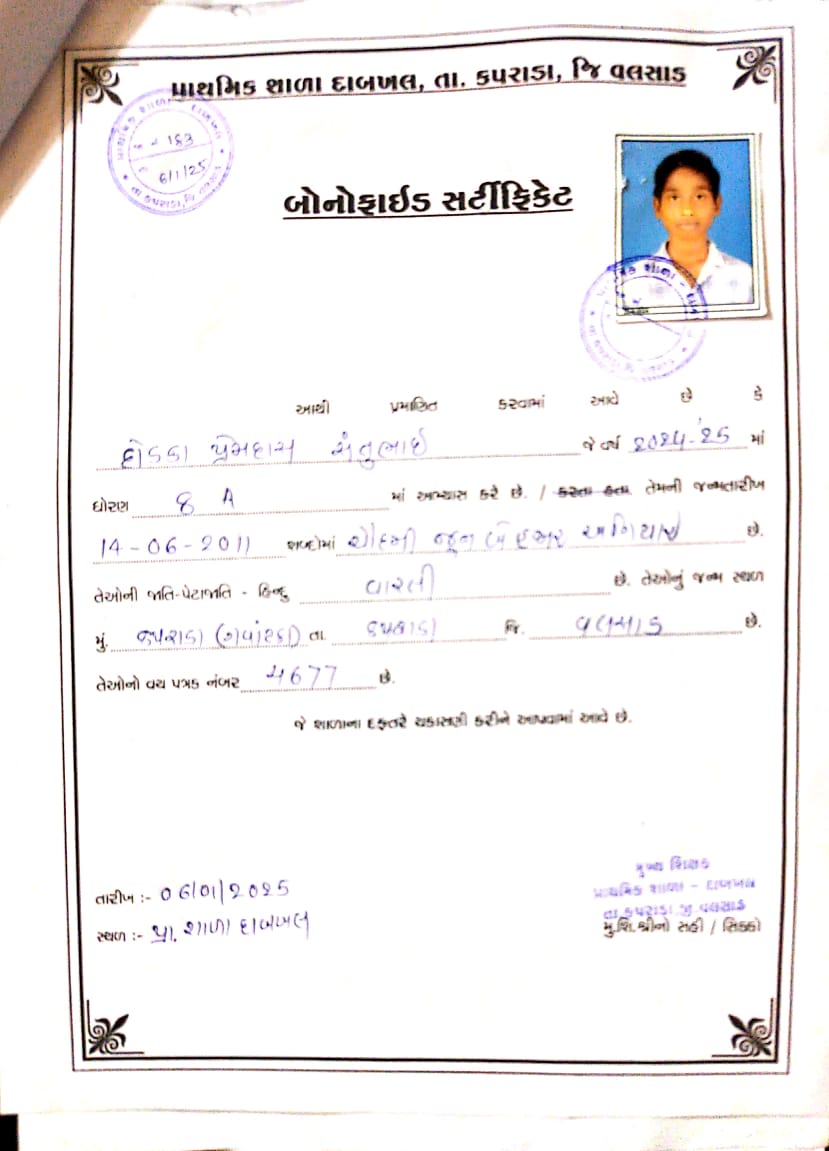 પ્રાથમિક શાળા દાબખલ, તા. કપરાડા, જિ વલસાડ
પ્રાથમિક શાળા - દાબખલ
તા કપરાડા, જિ વલસાડ
163
6/1/25
બોનોફાઇડ સર્ટીફિકેટ
આથી પ્રમાણિત કરવામાં આવે છે કે
પ્રેમદાસ સંતુભાઇ જે વર્ષ 2024-'25 માં
ધોરણ 8 A માં અભ્યાસ કરે છે. / કરતા હતા. તેમની જન્મતારીખ
14-06-2011 શબ્દોમાં ચૌદમી જૂન બે હજાર અગિયાર છે.
તેઓની જાતિ-પેટાજાતિ - હિન્દુ વારલી છે. તેઓનું જન્મ સ્થળ
મું. તા. કપરાડા જિ. વલસાડ છે.
તેઓનો વય પત્રક નંબર 4677 છે.
જે શાળાના દફતરે ચકાસણી કરીને આપવામાં આવે છે.
તારીખ :- 06/01/2025
સ્થળ :- પ્રા. શાળા દાબખલ
મુખ્ય શિક્ષક
પ્રાથમિક શાળા - દાબખલ
તા.કપરાડા.જી.વલસાડ
મુ.શિ.શ્રીનો સહી / સિક્કો